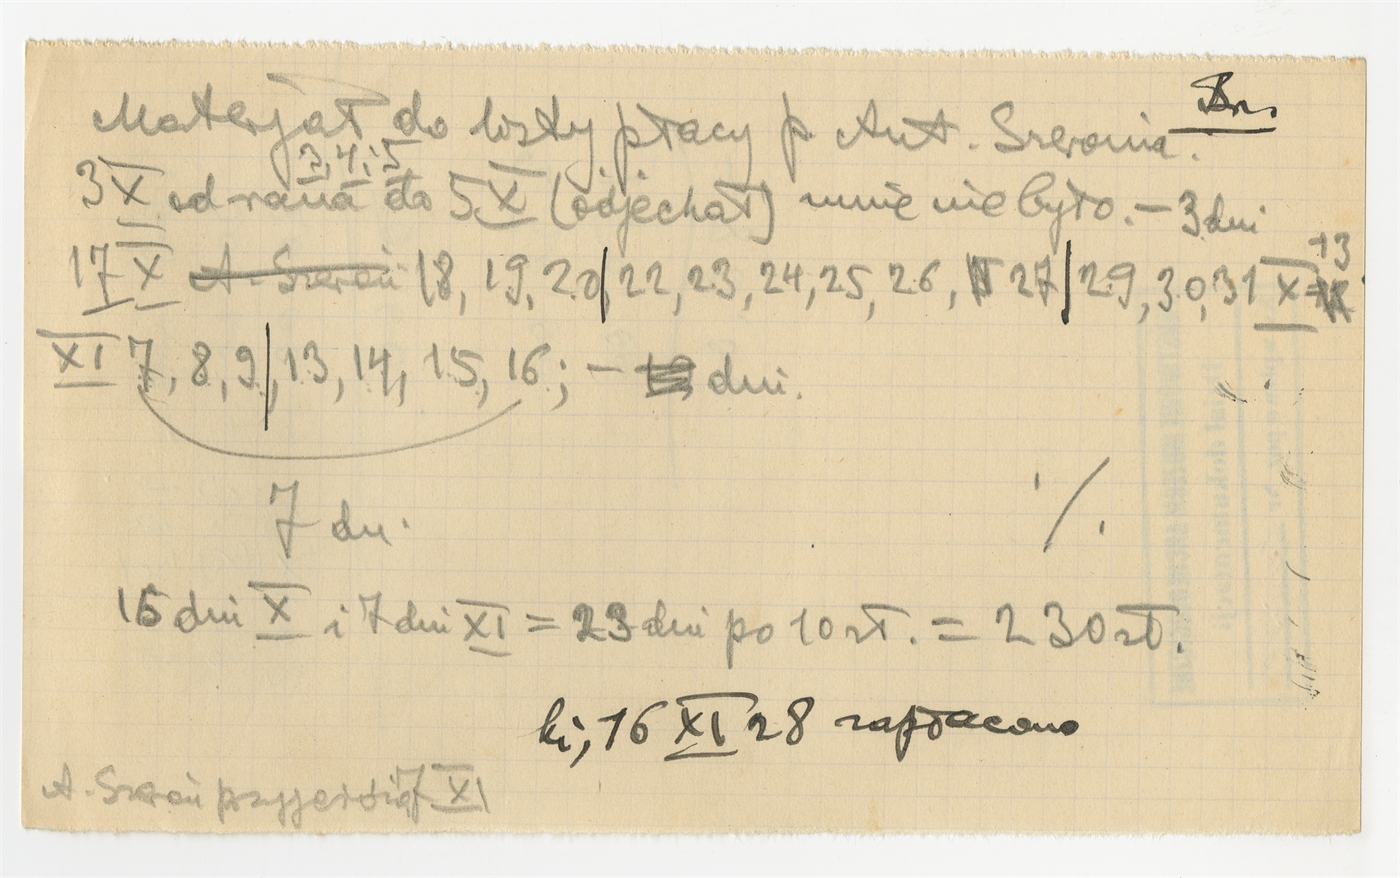 Br.
Materjał do listy płacy p Ant. Szeronia.
3, 4, i 5
3 X od rana do 5 X (odjechał) mnie nie było. – 3 dni
17 X A. Szeroń 18, 19, 20 | 22, 23, 24, 25, 26, 27 | 29, 30, 31 X = 13
XI 7, 8, 9 | 13, 14, 15, 16; – dni.
7 dni.
16 dni X i 7 dni XI = 23 dni po 10 zł. = 230 zł.
ki, 16 XI 28 zapłacono
A. Szeroń 7 XI